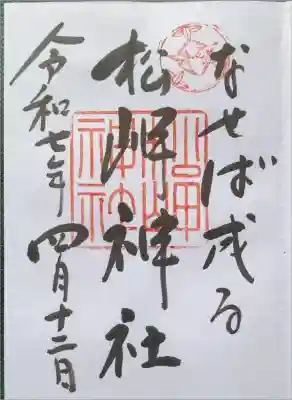 なせば成る
松岬神社
令和七年四月十二日